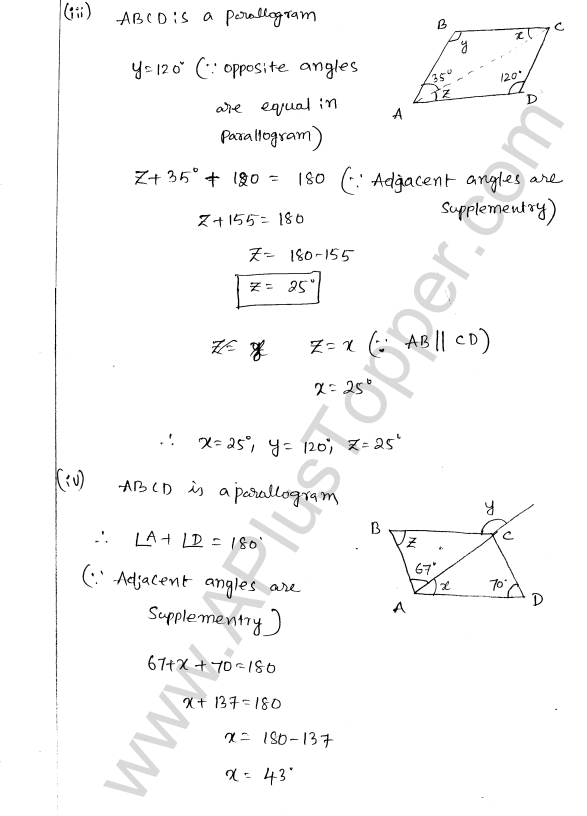 (iii) ABCD is a parallogram
y=120° (∵ opposite angles
are equal in
parallogram)
B
y
x
C
35°
z
120°
A
D
Z+35°+120 = 180 (∵ Adjacent angles are
Supplementry)
Z+155=180
Z= 180-155
Z= 25°
Z= y Z=x (∵ AB || CD)
x=25°
∴ x=25°, y=120°, Z=25°
(iv) ABCD is a parallogram
∴ ∠A+ ∠D = 180°
(∵ Adjacent angles are
Supplementry)
y
B
z
C
67°
x
70°
A
D
67+x+70=180
x+137=180
x= 180-137
x= 43°
www.APlusTopper.com